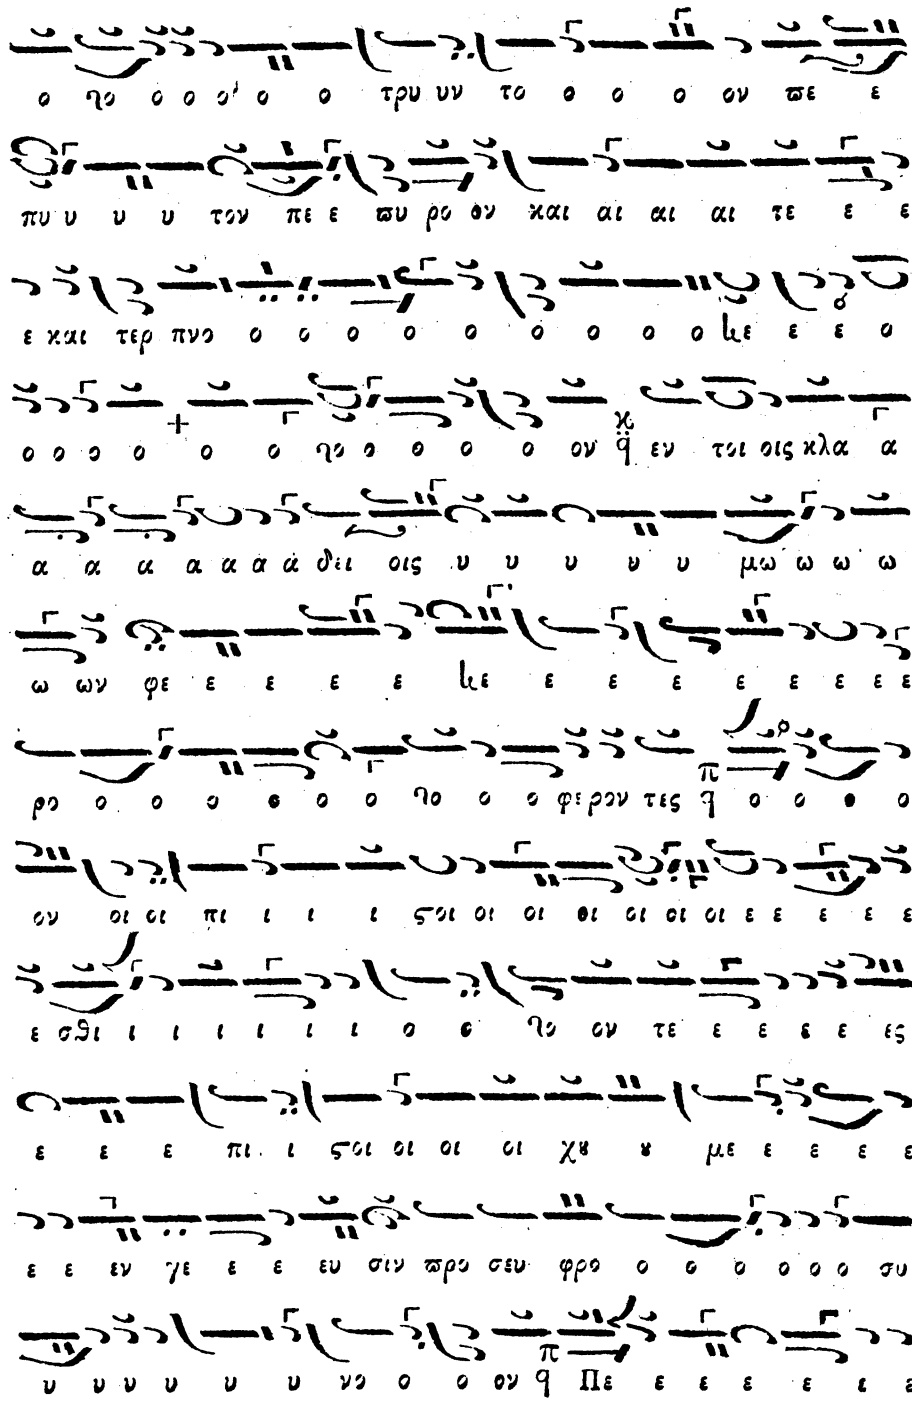 ο χο ο ο ο ο ο τρυ υν το ο ο ο ον πε ε
πυ υ υ υ τον πε ε πυ ρο ον και αι αι αι τε ε ε
ε και τερ πνο ο ο ο ο ο ο ο ο ο χε ε ε ο
ο ο ο ο ο ο χο ο ο ο ο ον εν τοι οις κλα α
α α α α α α α δει οις υ υ υ υ υ μω ω ω ω
ω ων φε ε ε ε ε χε ε ε ε ε ε ε ε
ρο ο ο ο ο ο ο χο ο ο φε ρον τες ο ο ο ο
ον οι οι πι ι ι ι ϛοι οι οι οι οι οι οι ε ε ε ε ε
ε σθι ι ι ι ι ι ι ο ο χο ον τε ε ε ε ε ες
ε ε ε πι ι ϛοι οι οι οι χȣ ȣ με ε ε ε ε
ε ε εν γε ε ε ευ σιν προ σευ φρο ο ο ο ο ο ο συ
υ υ υ υ υ υ νο ο ο ον Πε ε ε ε ε ε ε